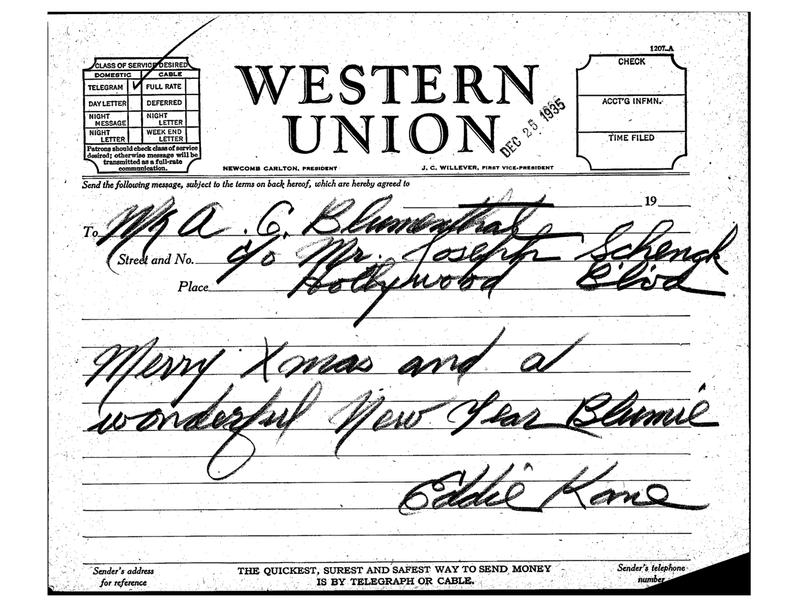 1207-A
CLASS OF SERVICE DESIRED
DOMESTIC CABLE
TELEGRAM FULL RATE
DAY LETTER DEFERRED
NIGHT MESSAGE NIGHT LETTER
NIGHT LETTER WEEK END LETTER
Patrons should check class of service
desired; otherwise message will be
transmitted as a full-rate
communication.
WESTERN
UNION
DEC 25 1935
CHECK
ACCT'G INFMN.
TIME FILED
NEWCOMB CARLTON, PRESIDENT J. C. WILLEVER, FIRST VICE-PRESIDENT
Send the following message, subject to the terms on back hereof, which are hereby agreed to
19
To Mr A. C. Blumenthal
Street and No. c/o Mr. Joseph Schenck
Place Hollywood Blvd
Merry Xmas and a
wonderful New Year Blumie
Eddie Kane
Sender's address
for reference
THE QUICKEST, SUREST AND SAFEST WAY TO SEND MONEY
IS BY TELEGRAPH OR CABLE.
Sender's telephone
number